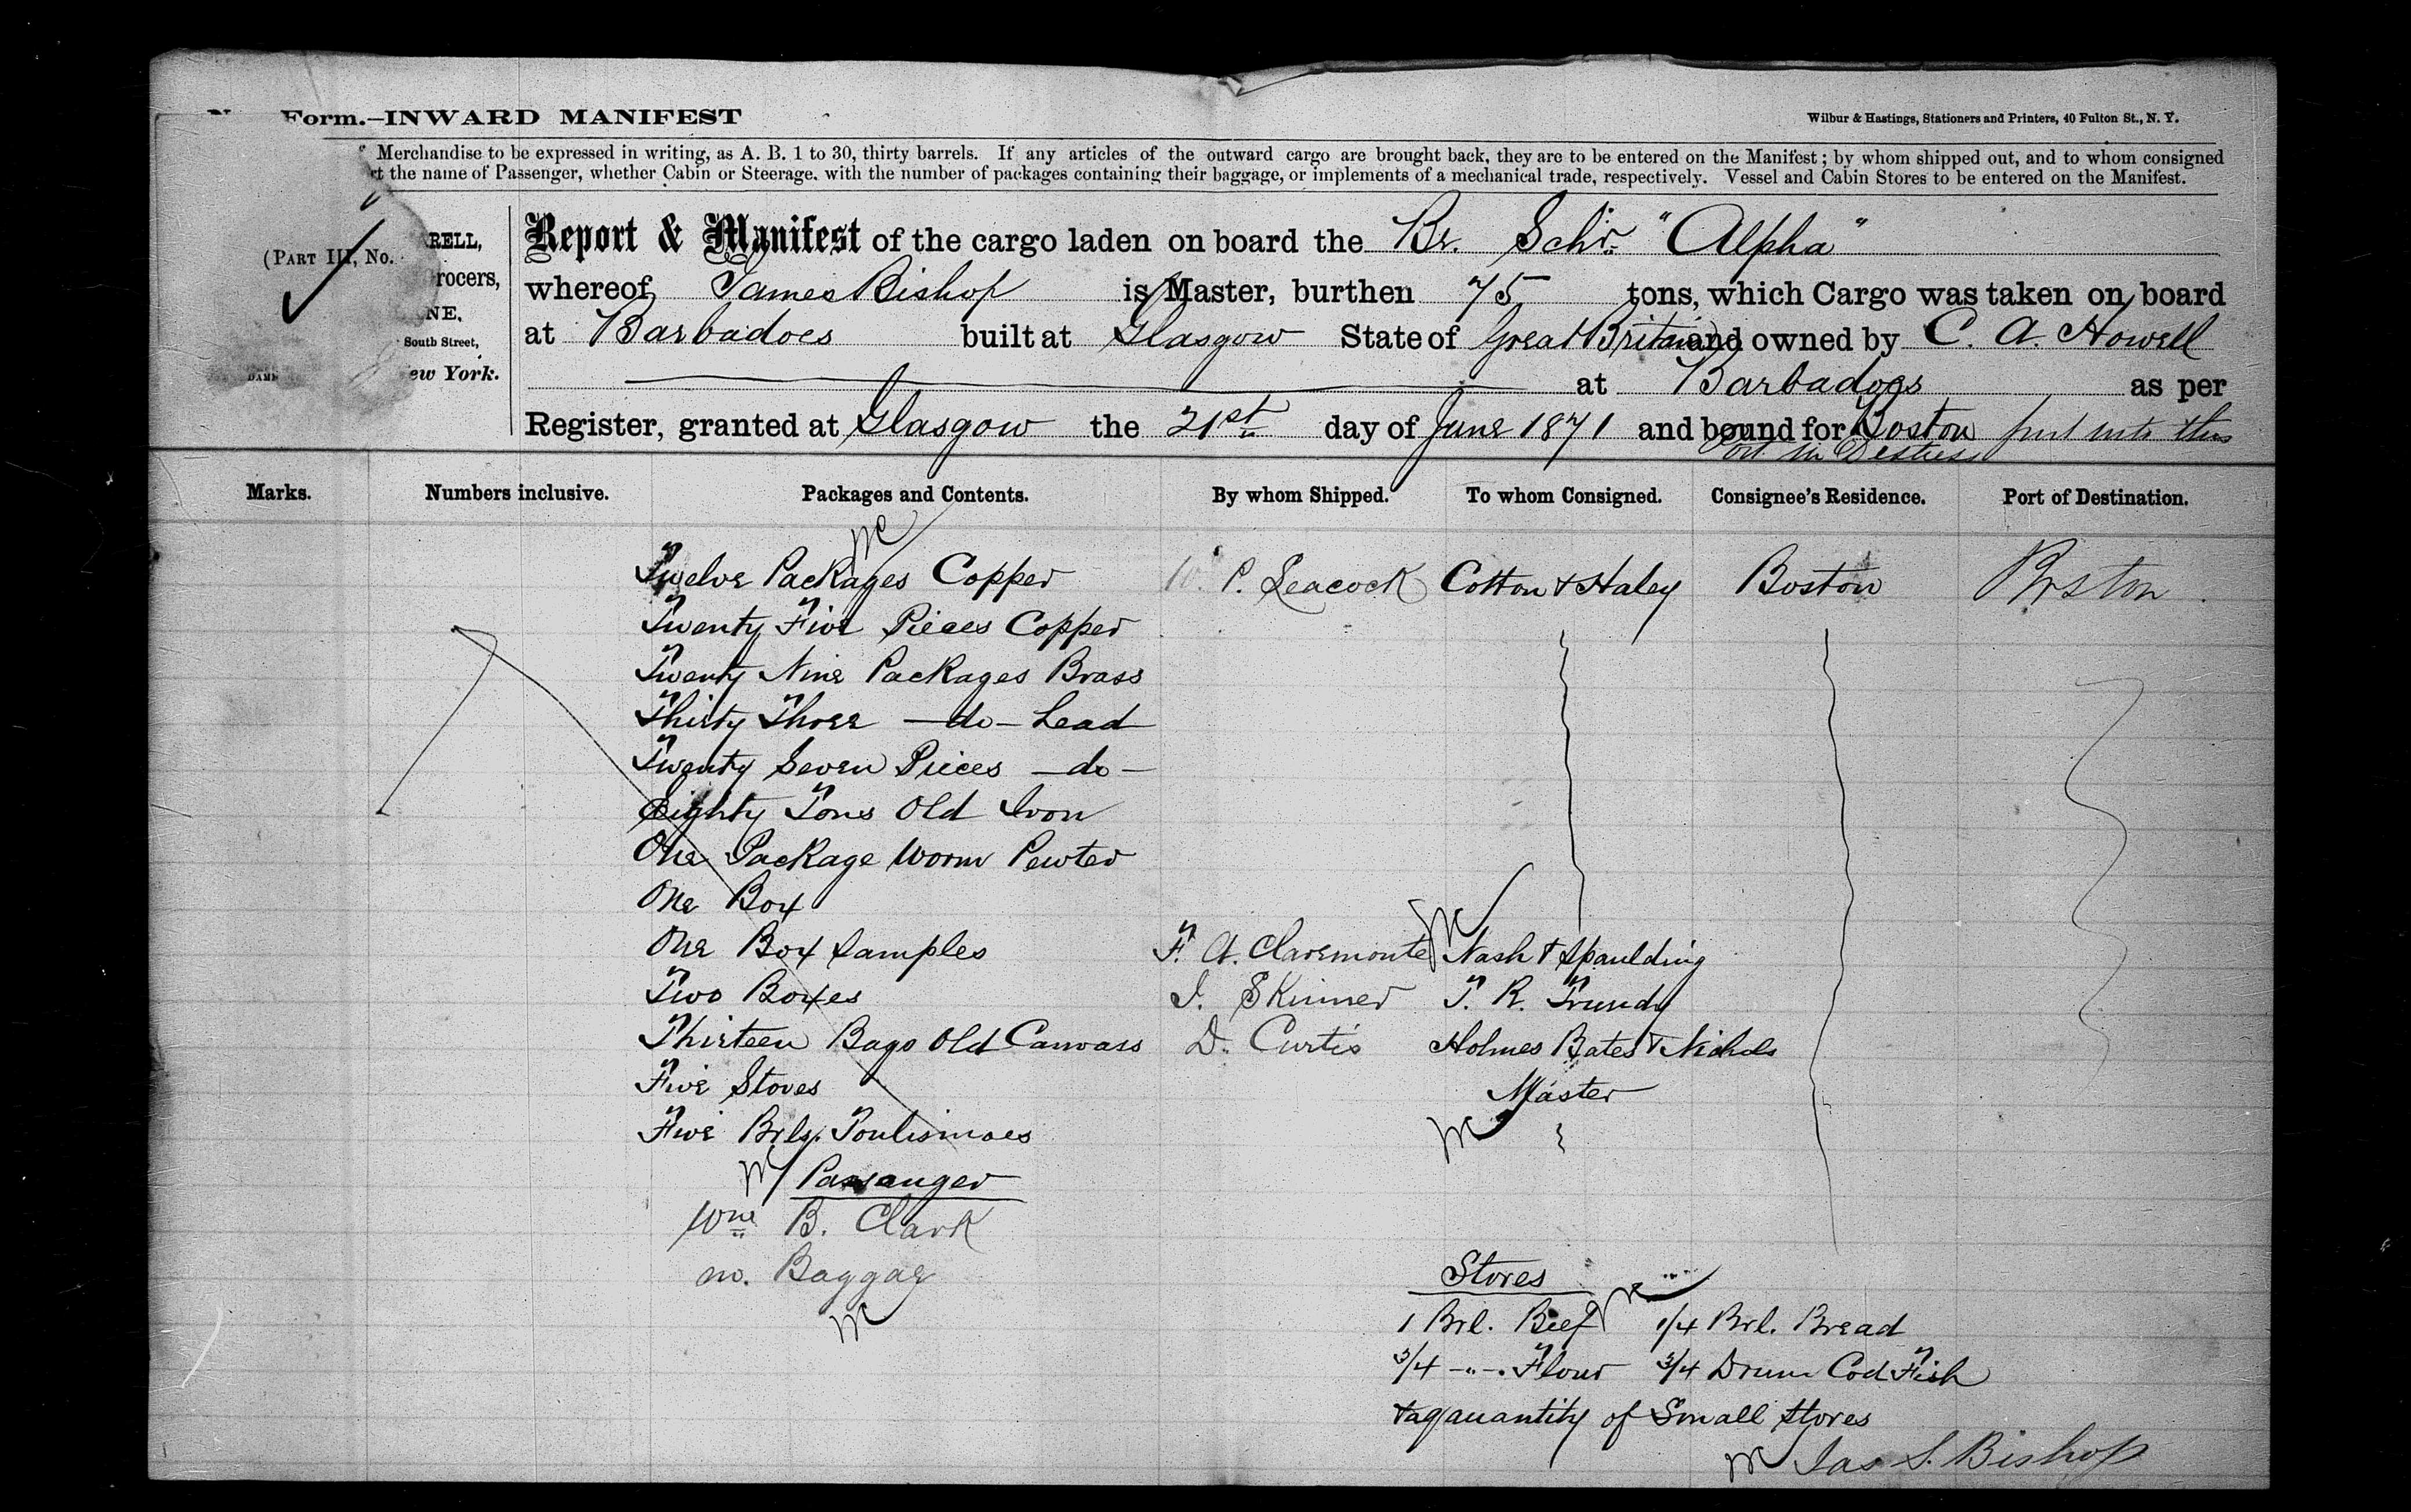 Form.–INWARD MANIFEST
Wilbur & Hastings, Stationers and Printers, 40 Fulton St., N. Y.
Merchandise to be expressed in writing, as A. B. 1 to 30, thirty barrels. If any articles of the outward cargo are brought back, they are to be entered on the Manifest; by whom shipped out, and to whom consigned
the name of Passenger, whether Cabin or Steerage, with the number of packages containing their baggage, or implements of a mechanical trade, respectively. Vessel and Cabin Stores to be entered on the Manifest.
(PART III, No.
RELL,
rocers,
NE,
South Street,
ew York.
Report & Manifest of the cargo laden on board the Br. Schr. "Alpha"
whereof James Bishop is Master, burthen 75 tons, which Cargo was taken on board
at Barbadoes built at Glasgow State of Great Britain and owned by C. A. Howell
at Barbadoes as per
Register, granted at Glasgow the 21st day of June 1871 and bound for Boston put into this
Port in Destress
Marks. Numbers inclusive. Packages and Contents. By whom Shipped. To whom Consigned. Consignee's Residence. Port of Destination.
Twelve Packages Copper P. Leacock Cotton & Haley Boston Boston
Twenty Five Pieces Copper
Twenty Nine Packages Brass
Thirty Three —do— Lead
Twenty Seven Pieces —do—
Eighty Tons Old Iron
One Package Worm Pewter
One Box
One Box Samples F. A. Claremonte Nash & Spaulding
Two Boxes J. Skinner T. R. Trundy
Thirteen Bags Old Canvass D. Curtis Holmes Bates & Nichols
Five Stoves Master
Five Brls.
Passanger
Wm B. Clark
no. Baggage
Stores
1 Brl. Beef 1/4 Brl. Bread
3/4 -"- Flour 3/4 Drum Cod Fish
quantity of Small Stores
Jas S. Bishop